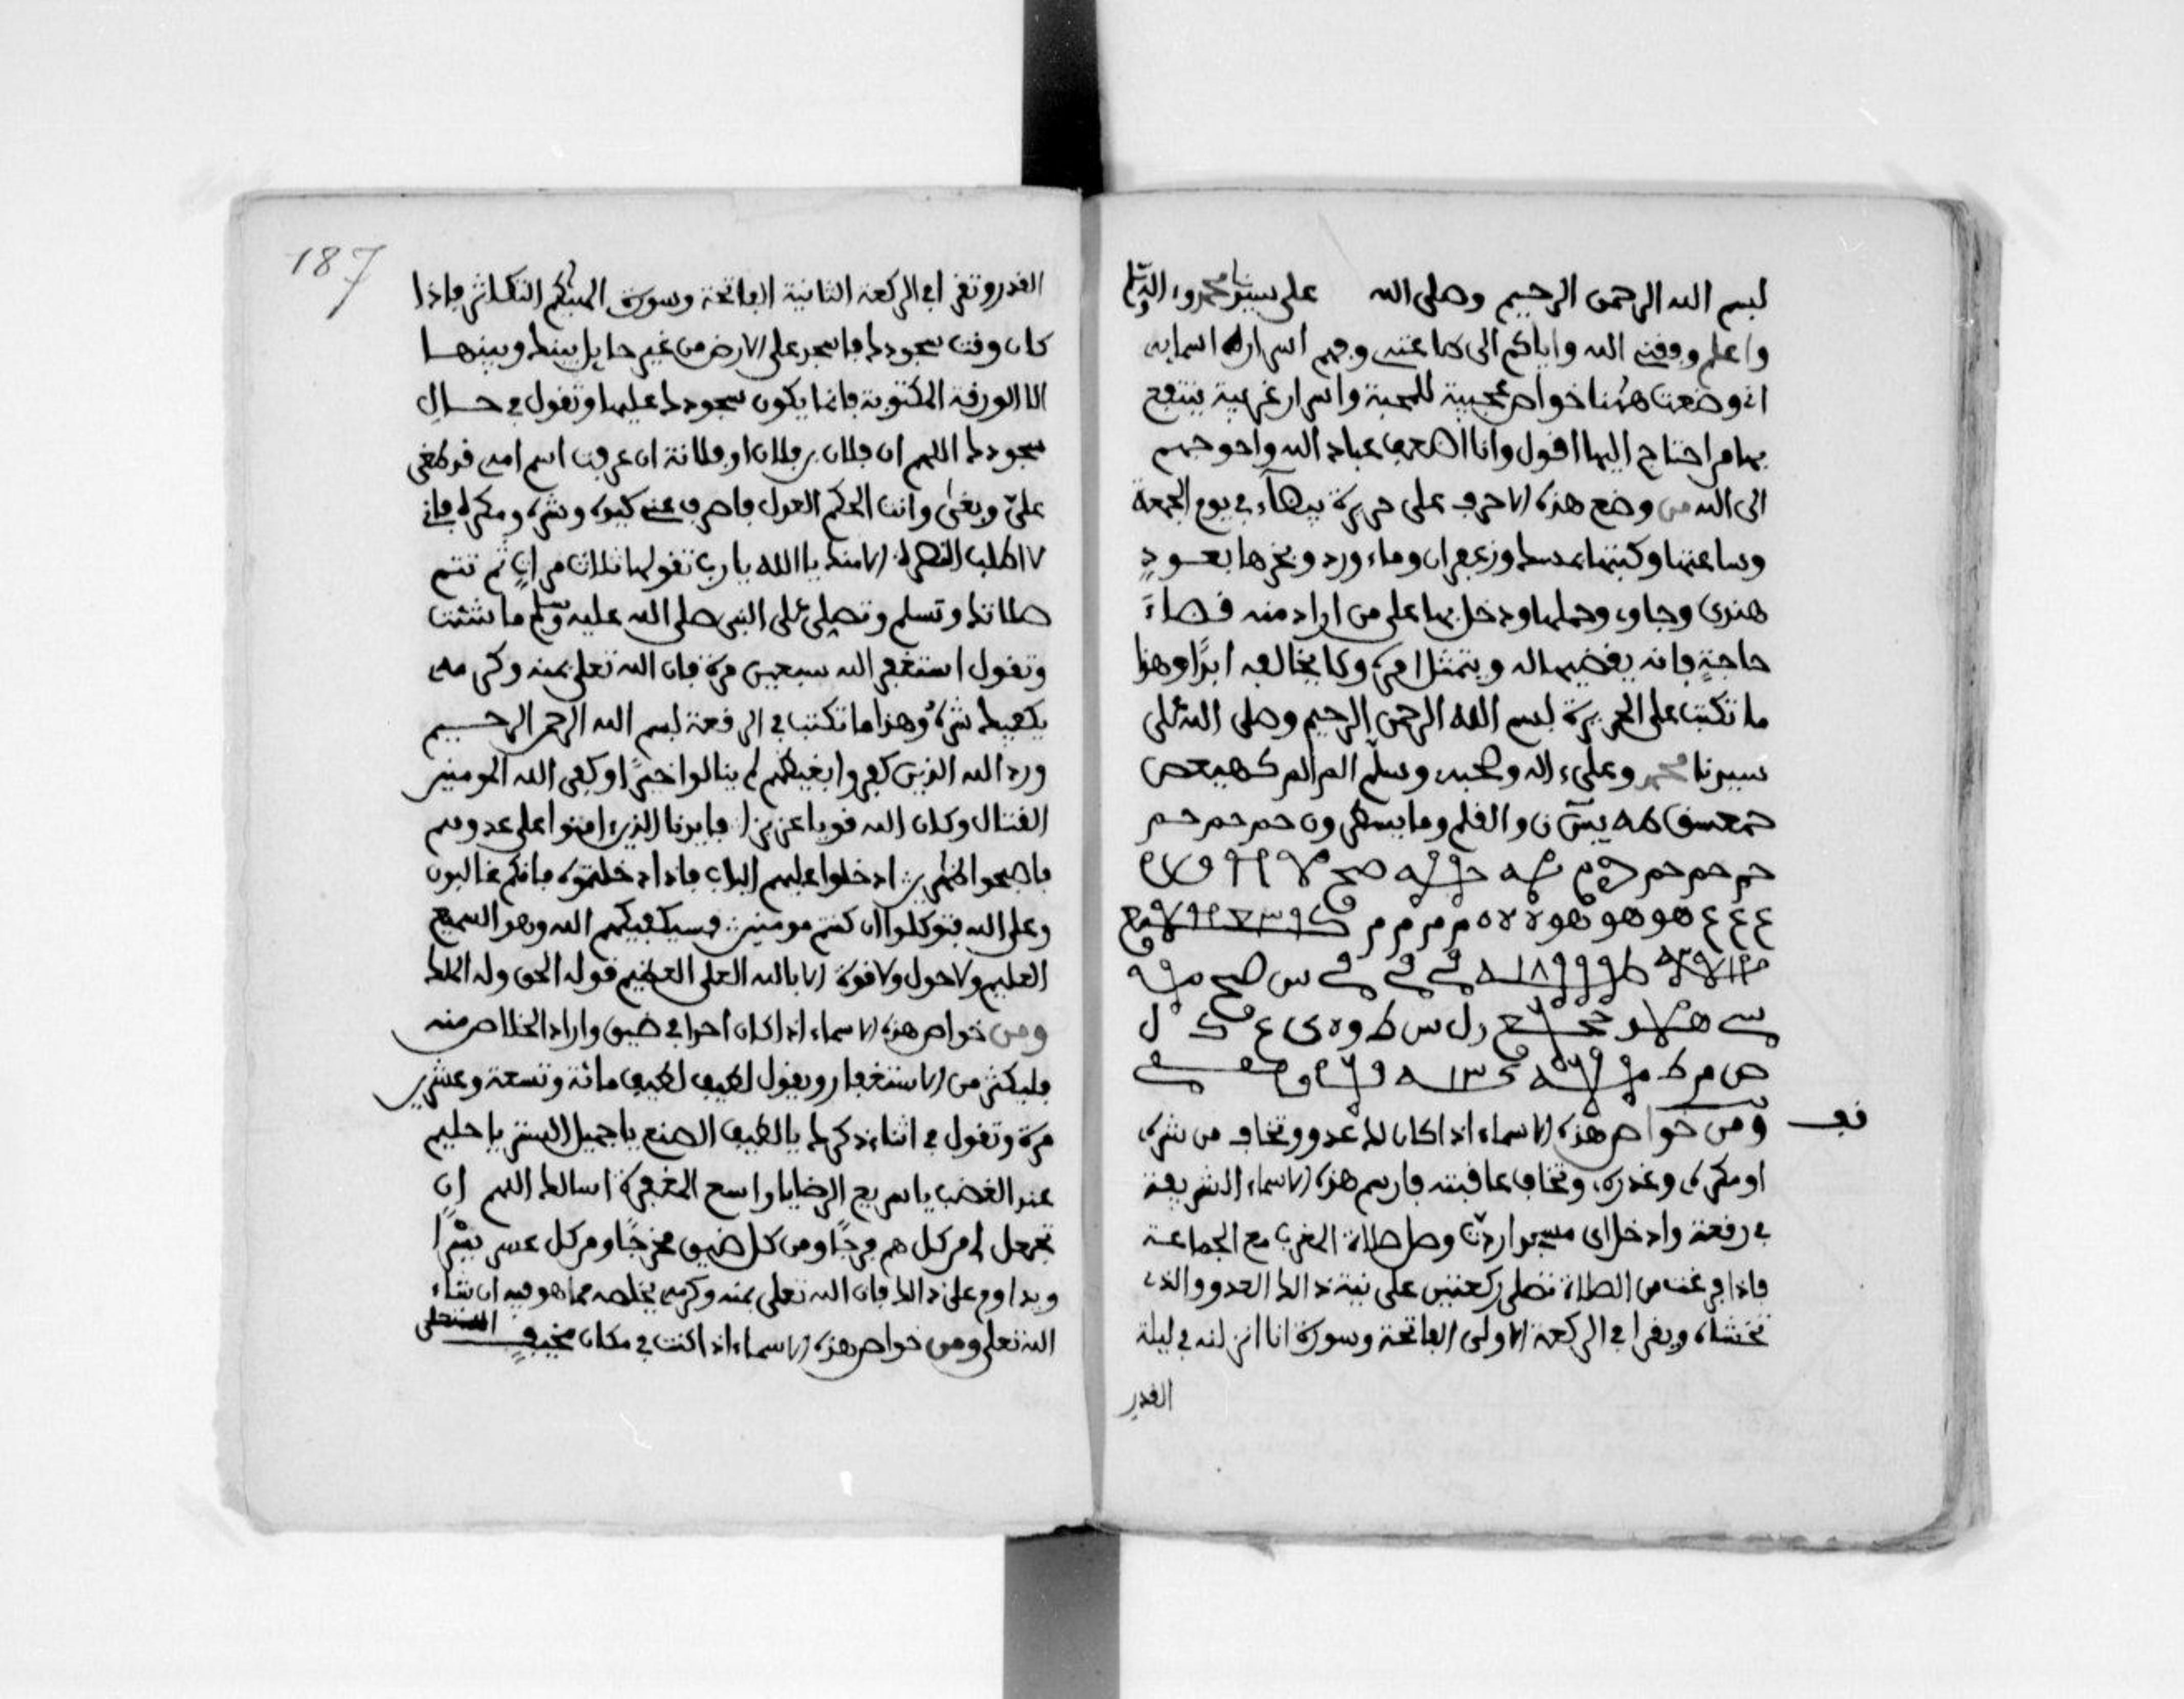 بسم الله الرحمن الرحيم وصلى الله على سيدنا محمد وءاله
واعلم وفقني الله واياكم الى طاعته وفهم اسرار اسمايه
اني وضعت هنا خواص عجيبة للمحبة واسرار غريبة ينتفع
بها من احتاج اليها اقول وانا اضعف عباد الله واحوجهم
الى الله من وضع هذه الاحرف على حريرة بيضاء في يوم الجمعة
وساعتها وكتبها بمسك وزعفران وماء ورد وبخرها بعود
هندى وجاوى وحملها ودخل بها على من اراد منه قضاء
حاجة فانه يقضيها له ويتمثل امره ولا يخالفه ابدا وهذا
ما تكتب على الحريرة بسم الله الرحمن الرحيم وصلى الله على
سيدنا محمد وعلى ءاله وصحبه وسلم الم الم كهيعص
حمعسق طه يس ن والقلم وما يسطرون حم حم حم
حم حم حم
ع ع ع ع هو هو هو
ل س ط و ه ى ع
ص م ط
ومن خواص هذه الاسماء اذا كان لك عدو وتخاف من شره
او مكره وغدره وتخاف عاقبته فارسم هذه الاسماء الشريفة
في رقعة وادخل اى مسجد اردت وصل صلاة المغرب مع الجماعة
فاذا فرغت من الصلاة تصلى ركعتين على نية ذالك العدو والذى
تخشاه ويقرا في الركعة الاولى الفاتحة وسورة انا انزلنه في ليلة
القدر
187
القدر وتقرا في الركعة الثانية الفاتحة وسورة الهيكم التكاثر فاذا
كان وقت سجودك فاسجد على الارض من غير حايل بينك وبينها
الا الورقة المكتوبة فانما يكون سجودك عليها وتقول في حال
سجودك اللهم ان فلان بن فلان او فلانة ان عرفت اسم امه قد طغى
علي وبغى وانت الحكم العدل فاصرف عني كيده وشره ومكره فاني
لا اطلب النصرة الا منك يا الله يا رب تقولها ثلاث مرات ثم تتم
صلاتك وتسلم وتصلى على النبي صلى الله عليه وسلم ما شئت
وتقول استغفر الله سبعين مرة فان الله تعلى بمنه وكرمه
يكفيك شره وهذا ما تكتب في الرقعة بسم الله الرحمن الرحيم
ورد الله الذين كفروا بغيظهم لم ينالوا خيرا وكفى الله المومنين
القتال وكان الله قويا عزيزا فايدنا الذين ءامنوا على عدوهم
فاصبحوا ظهرين ادخلوا عليهم الباب فاذا دخلتموه فانكم غالبون
وعلى الله فتوكلوا ان كنتم مومنين فسيكفيكهم الله وهو السميع
العليم ولا حول ولا قوة الا بالله العلي العظيم قوله الحق وله الملك
ومن خواص هذه الاسماء اذا كان احدا في ضيق واراد الخلاص منه
فليكثر من الاستغفار ويقول لطيف لطيف مائة وتسعة وعشرين
مرة وتقول في اثناء ذكرك يا لطيف الصنع يا جميل الستر يا حليم
عند الغضب يا سريع الرضا يا واسع المغفرة اسالك اللهم ان
تجعل لى من كل هم فرجا ومن كل ضيق مخرجا ومن كل عسر يسرا
ويداوم على ذالك فان الله تعلى بمنه وكرمه يخلصه مما هو فيه ان شاء
الله تعلى ومن خواص هذه الاسماء اذا كنت في مكان مخيف